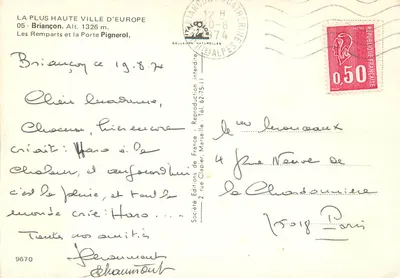 LA PLUS HAUTE VILLE D'EUROPE
05 - Briançon. Alt. 1326 m.
Les Remparts et la Porte Pignerol.
Briançon ce 19.8.74
Chère madame,
Chacun, hier encore
criait : Haro à la
chaleur, et aujourd'hui
c'est la pluie, et tout le
monde crie : Haro ...
Toutes nos amitiés
9670
Société Editions de France - Reproduction interdite
2, rue Clapier, Marseille - Tél. 62-75-11
12 H
1974
ALPES
0,50
REPUBLIQUE FRANÇAISE
4 Rue Neuve de
la Chardonnière
75018 Paris